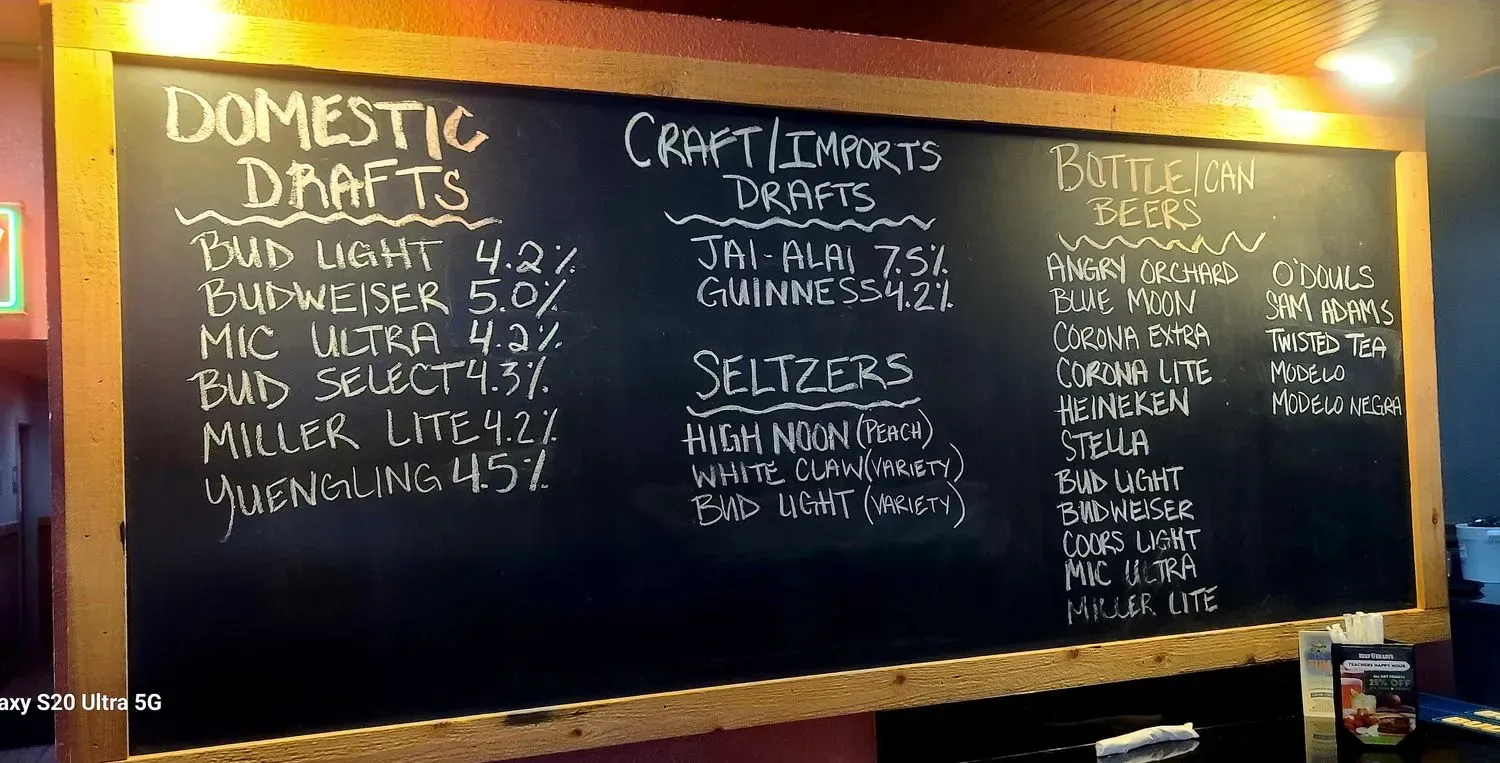 DOMESTIC
DRAFTS
BUD LIGHT 4.2%
BUDWEISER 5.0%
MIC ULTRA 4.2%
BUD SELECT 4.3%
MILLER LITE 4.2%
YUENGLING 4.5%
CRAFT/IMPORTS
DRAFTS
JAI-ALAI 7.5%
GUINNESS 4.2%
SELTZERS
HIGH NOON (PEACH)
WHITE CLAW (VARIETY)
BUD LIGHT (VARIETY)
BOTTLE/CAN
BEERS
ANGRY ORCHARD
BLUE MOON
CORONA EXTRA
CORONA LITE
HEINEKEN
STELLA
BUD LIGHT
BUDWEISER
COORS LIGHT
MIC ULTRA
MILLER LITE
O'DOULS
SAM ADAMS
TWISTED TEA
MODELO
MODELO NEGRA
TEACHERS HAPPY HOUR
25% OFF
axy S20 Ultra 5G